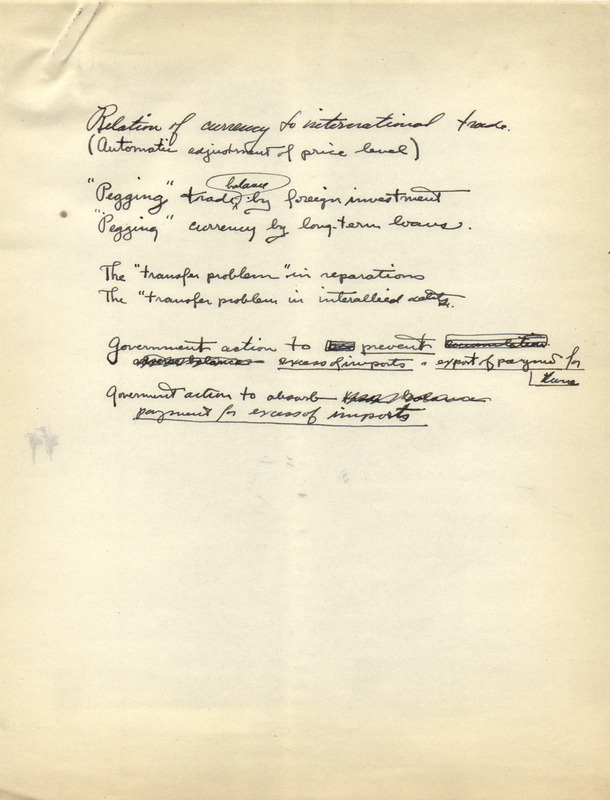 Relation of currency to international trade.
(Automatic adjustment of price level)
balance
"Pegging" trade by foreign investment
"Pegging" currency by long-term loans.
The "transfer problem" in reparations
The "transfer problem in interallied debts.
Government action to prevent accumulation
excess of imports & export of payment for
them
Goverment action to absorb
payment for excess of imports